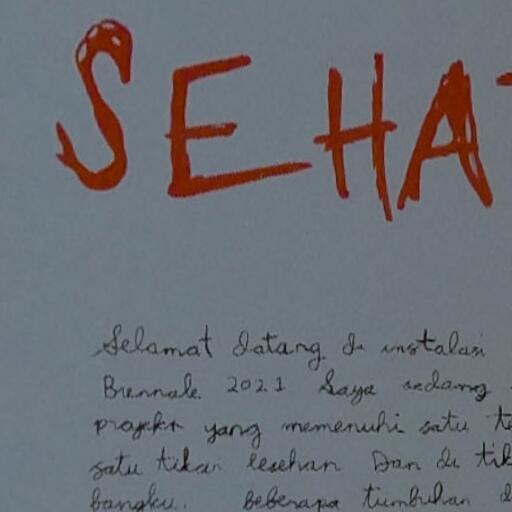 SEHAT
Selamat datang di instalasi
Biennale 2021 Saya sedang
projekr yang memenuhi satu
satu tikar lesehan Dan di tik
bangku. beberapa tumbuhan d